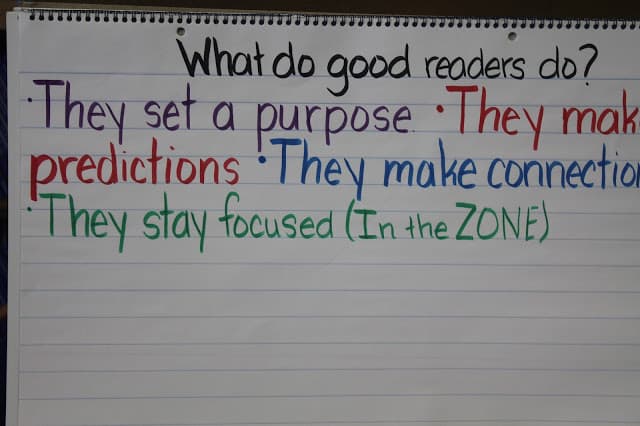 What do good readers do?
·They set a purpose. ·They mak
predictions ·They make connectio
·They stay focused (In the ZONE)